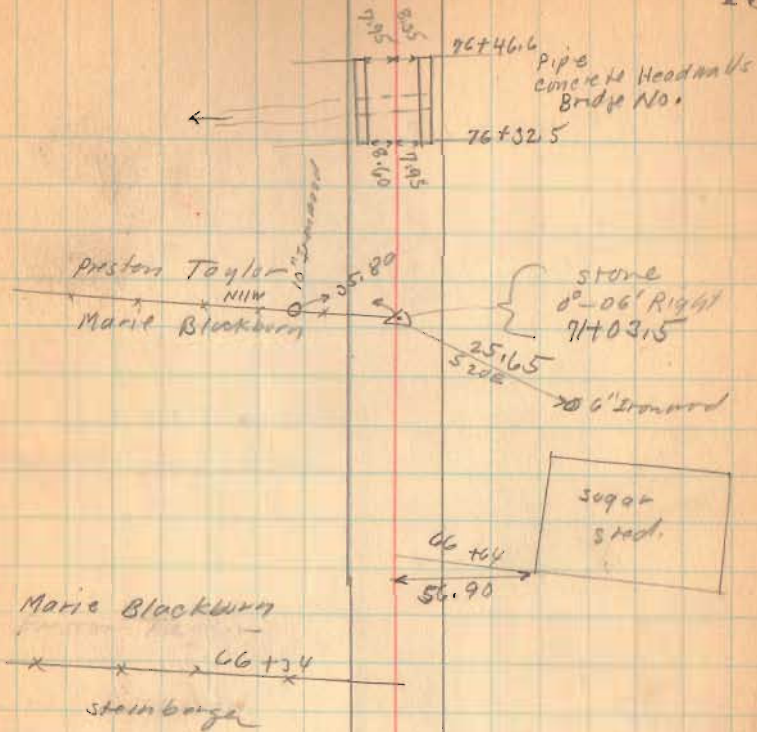 7.95 8.35
76+46.6
Pipe
Concrete Headwalls
Bridge No.
76+32.5
8.60 7.95
10" Ironwood
Preston Taylor
N11W
35.80
Marie Blackburn
stone
0°-06' Right
71+03.5
25.65
S20E
6" Ironwood
sugar
sred.
66+64
56.90
Marie Blackburn
66+34